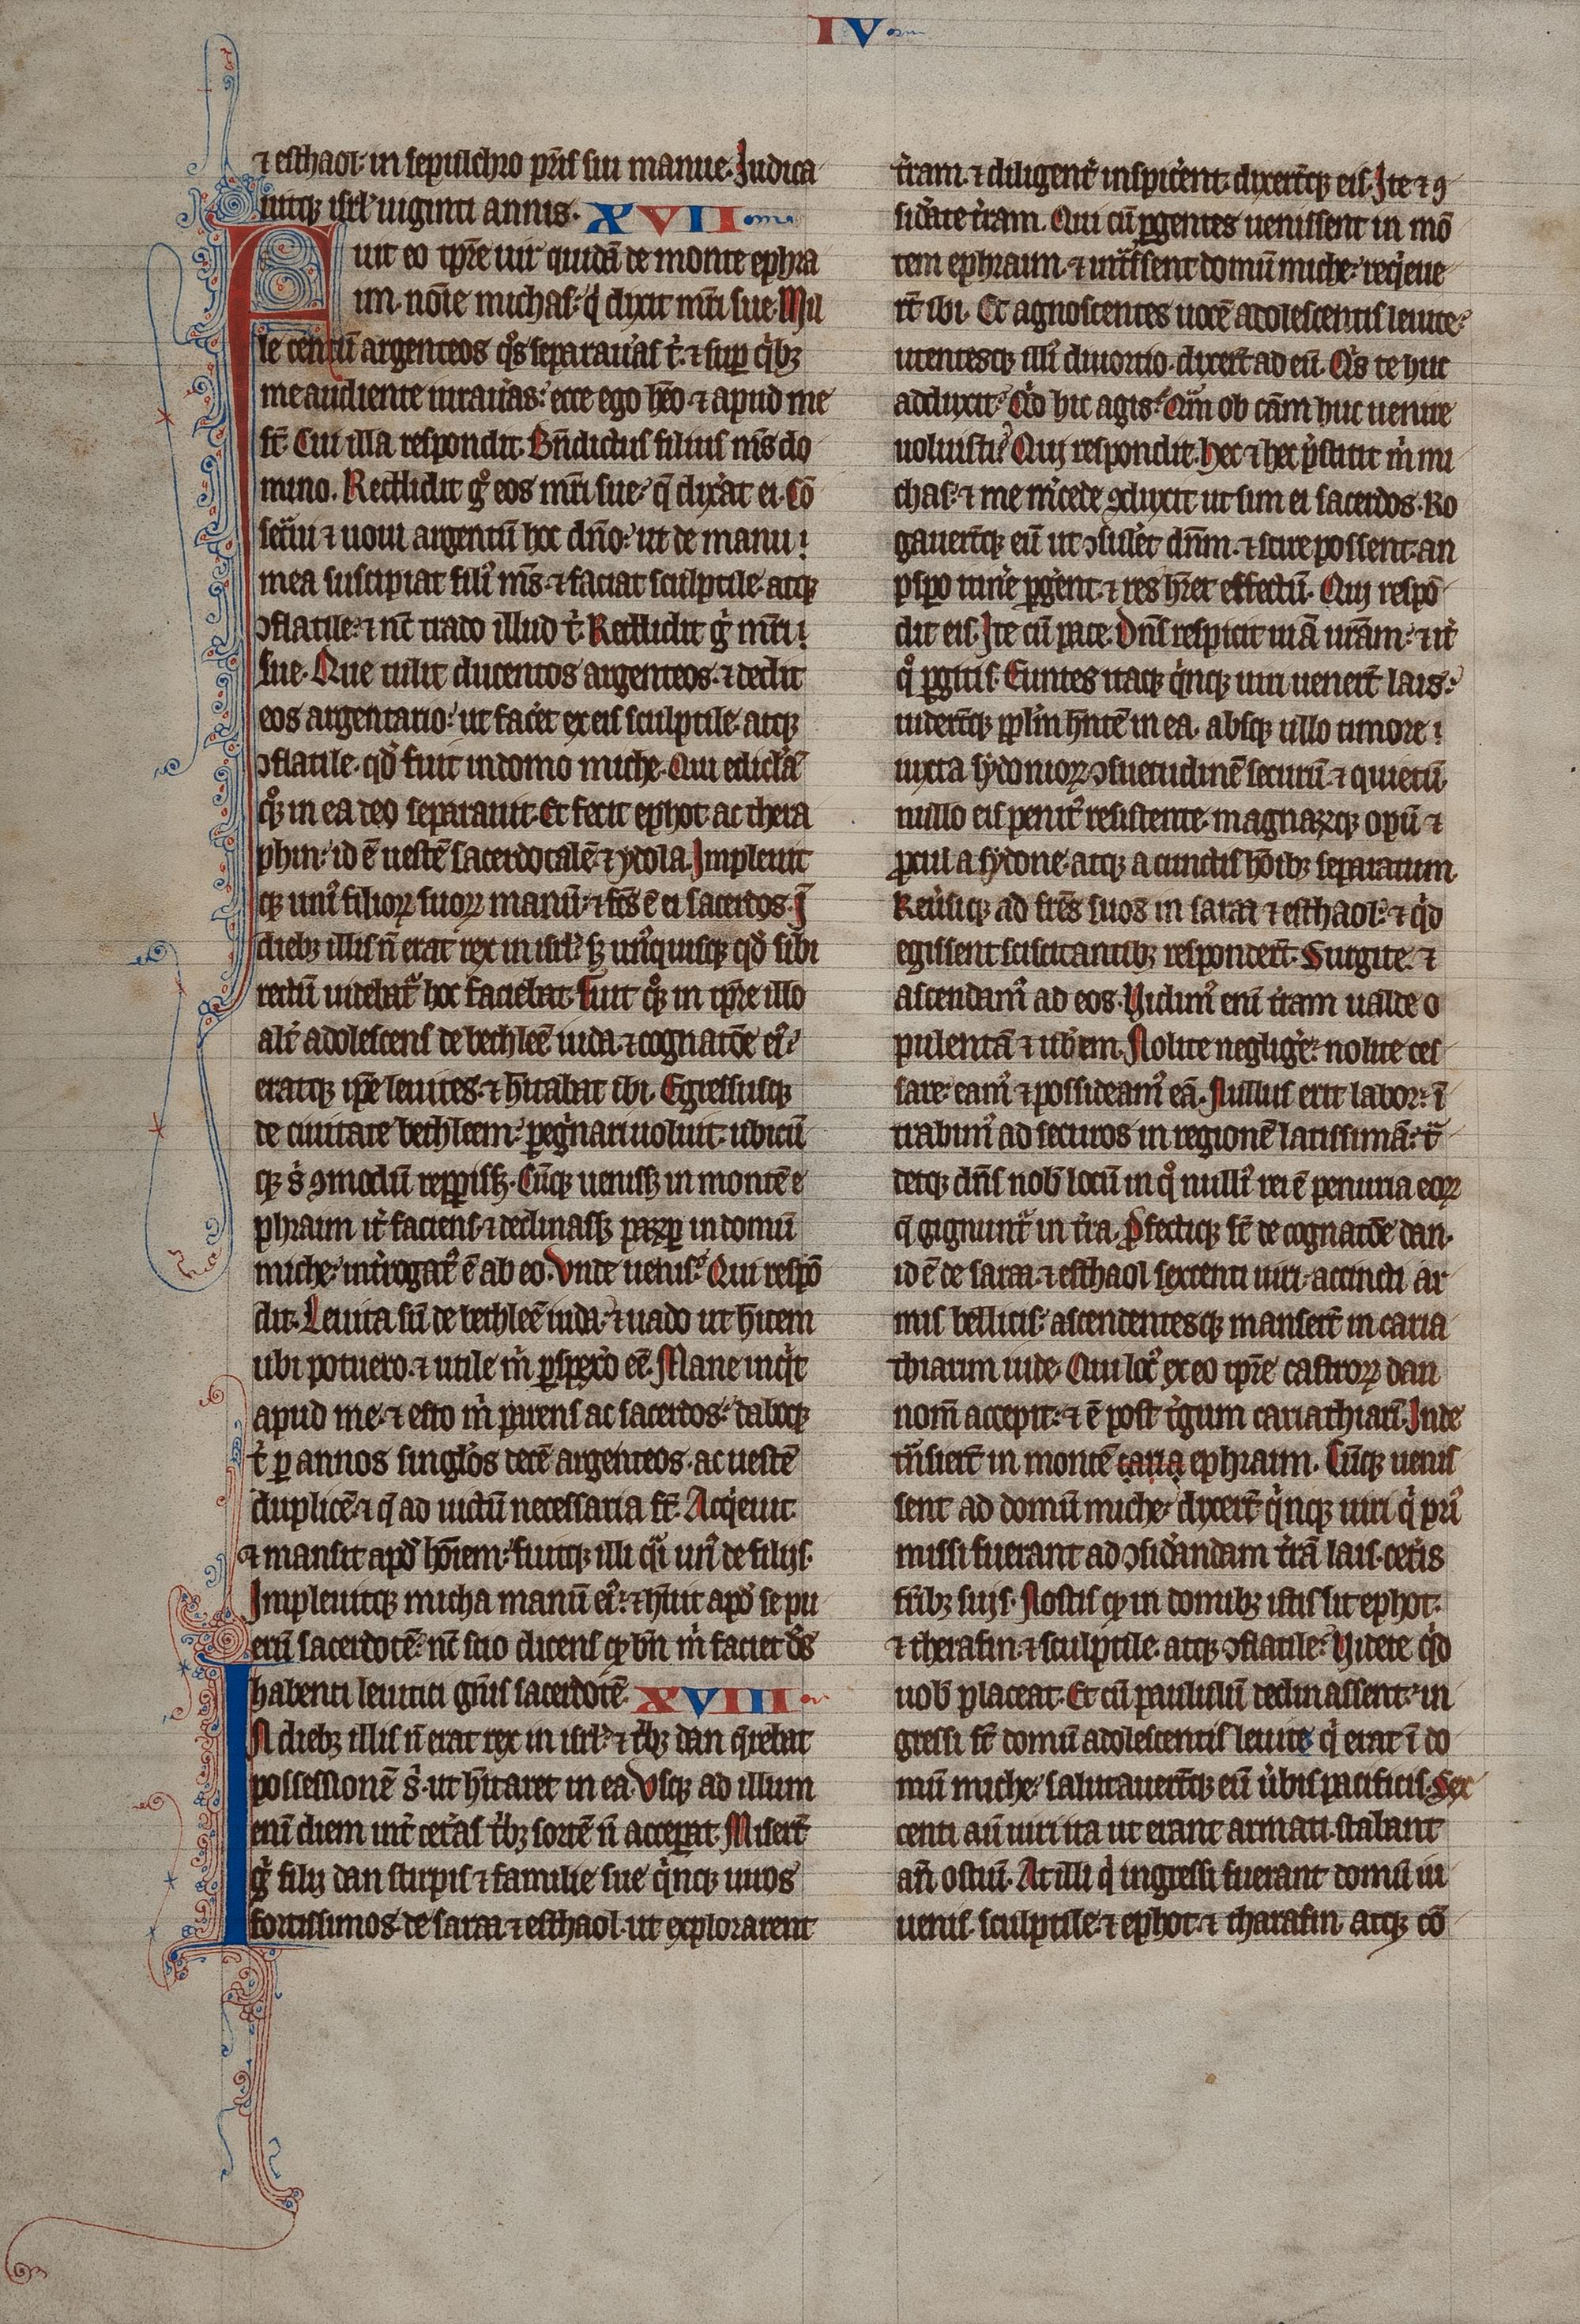 IV
⁊ esthaol· in sepulchro pr̄is sui manue. Iudica
uitq; isrł uiginti annis. XVII
Fuit eo tp̄re uir quidā de monte ephra
im. noīe michas· q̇ dixit mr̄i sue. Mil
le centū argenteos qͦs separaueras t̄· ⁊ sup qͥb;
me audiente iuraueras· ecce ego hēo ⁊ apud me
st̄. Cui illa respondit. Bn̄dictus filius m̄s do
mino. Reddidit gͦ eos mr̄i sue· q̄ dixat ei. Cō
secͣui ⁊ uoui argentū hoc dn̄o· ut de manu
mea suscipiat filiꝰ m̄s· ⁊ faciat sculptile· atq;
ↄflatile· ⁊ nc̄ trado illud tͥ. Reddidit gͦ mr̄i
sue. Que tulit ducentos argenteos· ⁊ dedit
eos argentario· ut facet ex eis sculptile· atq;
ↄflatile· qd̄ fuit in domo miche. Qui ediclā
qͦ; in ea deo separauit. Et fecit ephot· ac thera
phin· id ē uestē sacerdotalē· ⁊ ydola. Impleuit
q; uniꝰ filioꝝ suoꝝ manū· ⁊ fc̄s ē ei sacerdos. I
dieb; illis n̄ erat rex in isrł· s; unꝰquisq; qd̄ sibi
rectū uidebat̄ hoc faciebat. Fuit qͦ; in tp̄re illo
alt̄ adolescens de bethleē iuda· ⁊ cognatōe eiꝰ·
eratq; ip̄e leuites· ⁊ hītabat ibi. Egressusq;
de ciuitate bethleem· pegͥnari uoluit· ubicū
q; sͥ ꝯmodū repīss;. Cūq; ueniss; in montē e
phraim it̄ faciens· ⁊ declinass; paꝝp in domū
miche· int̄rogatꝰ ē ab eo. Vnde uenis· Qui respō
dit. Leuita sū de bethleē iuda· ⁊ uado ut hītem
ubi potuero· ⁊ utile m̄ pspexo eē. Mane inqͥt
apud me· ⁊ esto m̄ parens ac sacerdos· daboq;
tͥ p annos singlos decē argenteos· ac uestē
duplicē· ⁊ q̄ ad uictū necessaria st̄. Acqͥeuit
⁊ mansit apd̄ hōiem· fuitq; illi qͣi unꝰ de filijs.
Impleuitq; micha manū eiꝰ· ⁊ hūit apd̄ se pu
erū sacerdotē· nc̄ scio dicens qꝫ bn̄ m̄ faciet ds̄
habenti leuitici gn̄is sacerdotē. XVIII
In dieb; illis n̄ erat rex in isrł· ⁊ tͥb; dan qͣrebat
possessionē sͥ· ut hītaret in ea. Vsq; ad illum
enī diem int̄ cetͥas tͥb; sortē n̄ acceꝑat. Misert̄
gͦ filij dan stirpis ⁊ familie sue qͥnq; uiros
fortissimos· de saraa ⁊ esthaol· ut explorarent
tr̄am· ⁊ diligent̄ inspicent· dixert̄q; eis. Ite ⁊ ꝯ
sidate tr̄am. Qui cū pgentes uenissent in mō
tem ephraim· ⁊ intͣssent domū miche· reqͥeue
rt̄ ibi. Et agnoscentes uocē adolescentis leuite·
utentesq; illiꝰ diuorio· dixert̄ ad eū. Qͥs te huc
adduxit· Qͥd hic agis· Qͣm ob cām huc uenire
uoluisti· Qui respondit. Hec ⁊ hec pͥstitit m̄ mi
chas· ⁊ me mͥcede ꝯduxit ut sim ei sacerdos. Ro
gauert̄q; eū ut ↄsulet dn̄m· ⁊ scire possent· an
pspo itine pgent· ⁊ res hr̄et effectū. Qui respō
dit eis. Ite cū pace. Dn̄s respicit uiā ur̄am· ⁊ it̄
qͦ pgitis. Euntes itaq; qͥnq; uiri uenert̄ lais·
uidert̄q; pplm̄ hn̄tē in ea· absq; ullo timore
iuxta sydonioꝝ ↄsuetudinē securū ⁊ quietū
nullo eis penitꝰ resistente· magnaꝝq; opū· ⁊
pcul a sydone· atq; a cunctis hōib; separatum.
Reūsiq; ad fr̄es suos in saraa ⁊ esthaol· ⁊ qͥd
egissent sciscitantib; respondert̄. Surgite· ⁊
ascendamꝰ ad eos. Vidimꝰ enī tr̄am ualde o
pulentā ⁊ ub̄em. Nolite neglige· nolite ces
sare· eamꝰ ⁊ possideamꝰ eā. Nullus erit labor· ī
trabimꝰ ad securos in regionē latissimā· tͣ
detq; dn̄s nob̄ locū in qͦ nulliꝰ rei ē penuria eoꝝ
q̄ gignunt̄ in tr̄a. Pfectiq; st̄ de cognatōe dan·
id ē de saraa· ⁊ esthaol sexcenti uiri· accincti ar
mis bellicis· ascendentesq; mansert̄ in caria
thiarim iude. Qui locꝰ ex eo tp̄re castroꝝ dan
nom̄ accepit· ⁊ ē post tͥgum cariathiarī. Inde
tͣnsiert̄ in montē caria ephraim. Cūq; uenis
sent ad domū miche· dixert̄ qͥnq; uiri qͥ priꝰ
missi fuerant ad ↄsidandam tr̄ā lais· cetͥis
frīb; suis. Nostis qꝫ in domib; istis sit ephot·
⁊ therafin· ⁊ sculptile· atq; ↄflatile· Videte qͥd
uob̄ placeat. Et cū paululū declinassent· in
gressi st̄ domū adolescentis leuite qͥ erat ī do
mū miche· salutauert̄q; eū ūbis pacificis. Sex
centi aū uiri ita ut erant armati· stabant
an̄ ostiū. At illi qͥ ingressi fuerant domū iu
uenis· sculptile· ⁊ ephot· ⁊ tharafin atq; cō